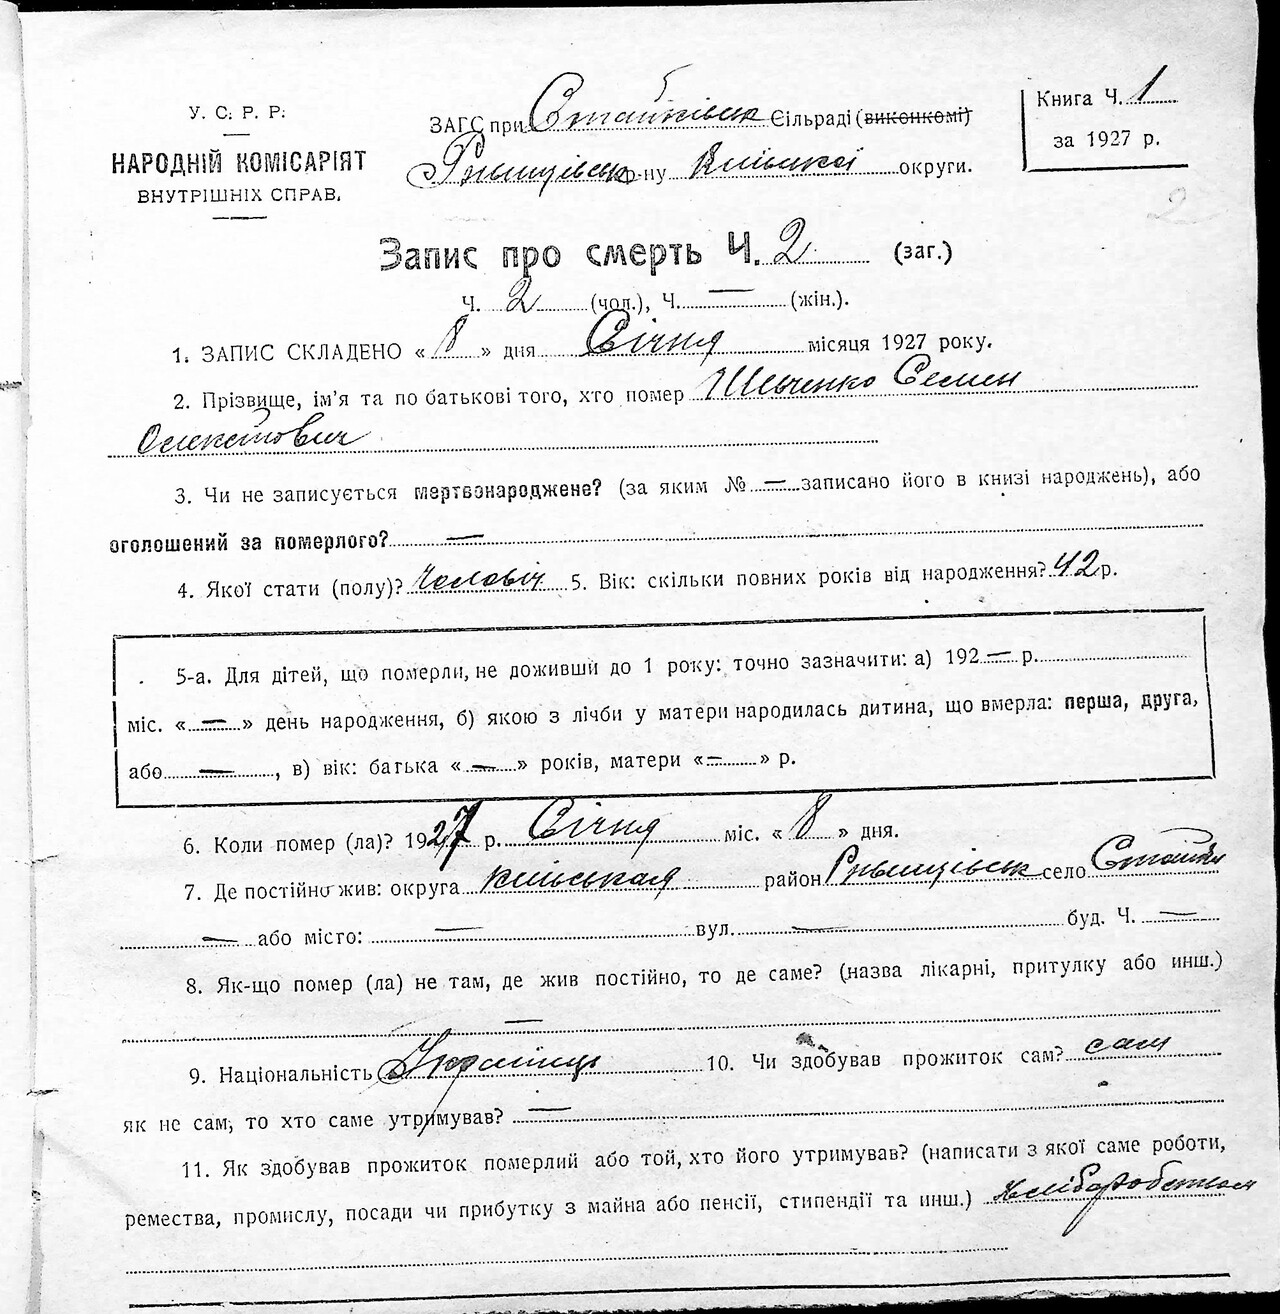 У. С. Р. Р.
НАРОДНІЙ КОМІСАРІЯТ
ВНУТРІШНІХ СПРАВ.
ЗАГС при Стайківськ Сільраді (виконкомі)
Ржищівськ р-ну Київської округи.
Книга Ч. 1
за 1927 р.
2
Запис про смерть Ч. 2 (заг.)
Ч. 2 (чол.), Ч. — (жін.).
1. ЗАПИС СКЛАДЕНО « 8 » дня Січня місяця 1927 року.
2. Прізвище, ім'я та по батькові того, хто помер Шевченко Семен
3. Чи не записується мертвонароджене? (за яким № — записано його в книзі народжень), або
оголошений за померлого? —
4. Якої стати (полу)? чоловіч 5. Вік: скільки повних років від народження? 42 р.
5-а. Для дітей, що померли, не доживши до 1 року: точно зазначити: а) 192 — р.
міс. « — » день народження, б) якою з лічби у матери народилась дитина, що вмерла: перша, друга,
або — , в) вік: батька « — » років, матери « — » р.
6. Коли помер (ла)? 1927 р. Січня міс. « 8 » дня.
7. Де постійно жив: округа Київськая район Ржищівськ село Стайки
— або місто: — вул. — буд. Ч. —
8. Як-що помер (ла) не там, де жив постійно, то де саме? (назва лікарні, притулку або инш.)
—
9. Національність Українець 10. Чи здобував прожиток сам? сам
як не сам, то хто саме утримував? —
11. Як здобував прожиток померлий або той, хто його утримував? (написати з якої саме роботи,
ремества, промислу, посади чи прибутку з майна або пенсії, стипендії та инш.) хліборобством